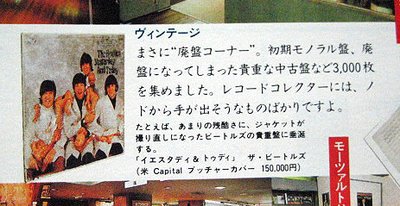 ヴィンテージ
まさに"廃盤コーナー"。初期モノラル盤、廃
盤になってしまった貴重な中古盤など3,000枚
を集めました。レコードコレクターには、ノ
ドから手が出そうなものばかりですよ。
たとえば、あまりの残酷さに、ジャケットが
撮り直しになったビートルズの貴重盤に垂涎
する。
「イエスタディ& トゥディ」 ザ・ビートルズ
(米 Capital ブッチャーカバー 150,000円)
The Beatles
Yesterday
And Today
モーツァルト